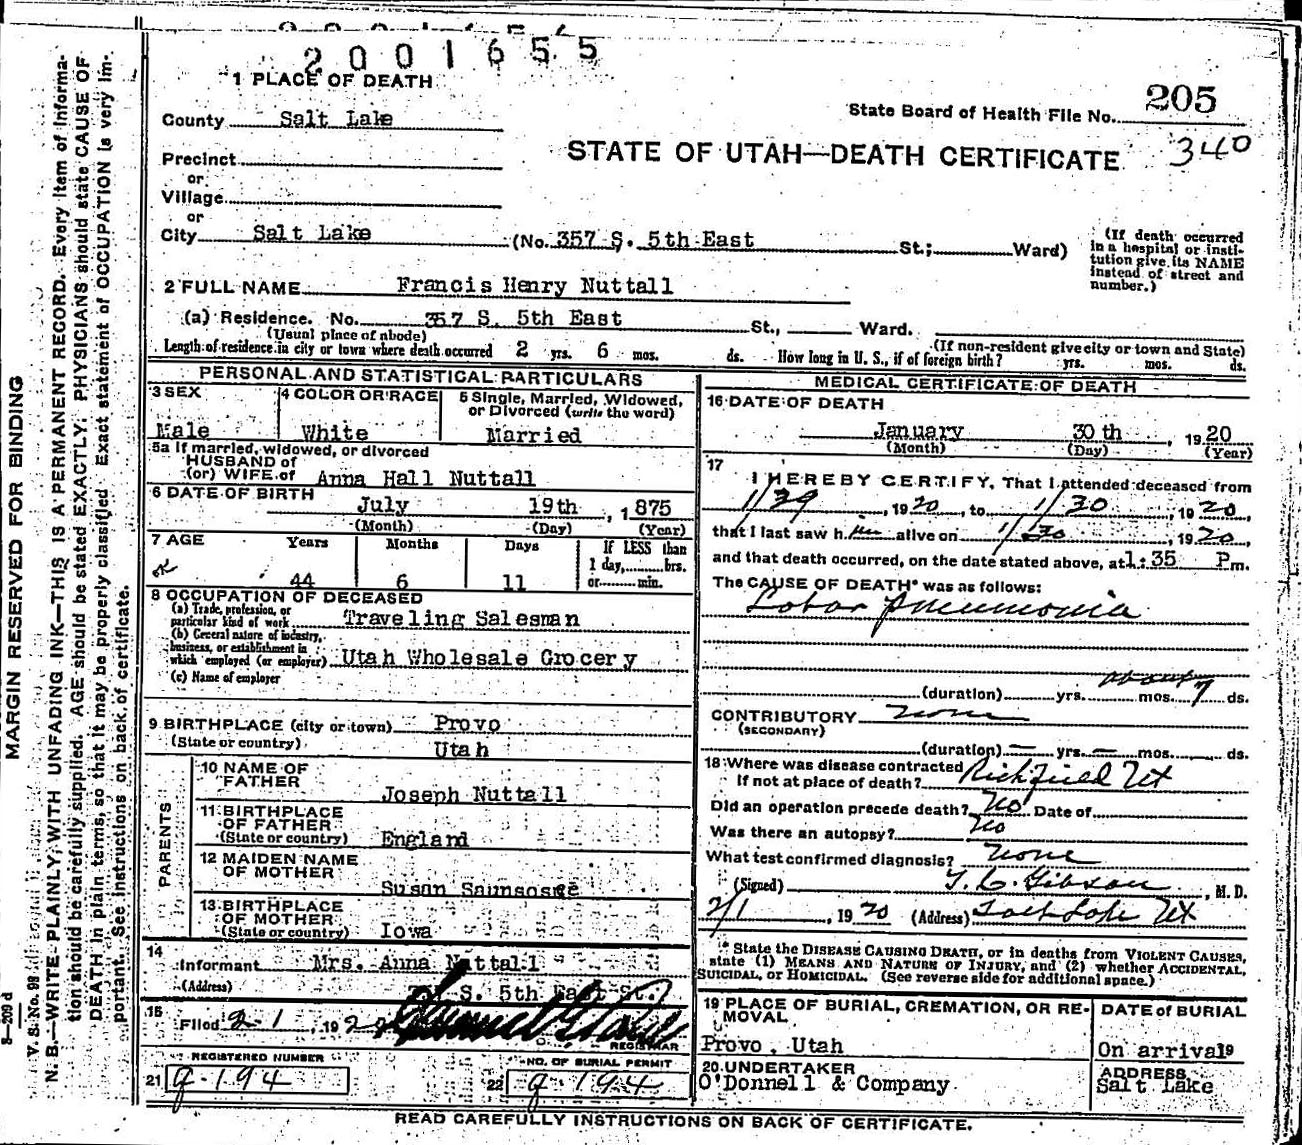 2001655
1 PLACE OF DEATH
State Board of Health File No. 205
340
County Salt Lake
STATE OF UTAH—DEATH CERTIFICATE
Precinct
or
Village
or
City Salt Lake (No. 357 S. 5th East St.; Ward)
(If death occurred in a hospital or institution give its NAME instead of street and number.)
2 FULL NAME Francis Henry Nuttall
(a) Residence. No. 357 S. 5th East St., Ward.
(Usual place of abode) (If non-resident give city or town and State)
Length of residence in city or town where death occurred 2 yrs. 6 mos. ds. How long in U. S., if of foreign birth? yrs. mos. ds.
PERSONAL AND STATISTICAL PARTICULARS
3 SEX
Male
4 COLOR OR RACE
White
5 Single, Married, Widowed, or Divorced (write the word)
Married
5a If married, widowed, or divorced
HUSBAND of
(or) WIFE of Anna Hall Nuttall
6 DATE OF BIRTH
July 19th, 1875
(Month) (Day) (Year)
7 AGE Years Months Days If LESS than
1 day, hrs.
or min.
44 6 11
8 OCCUPATION OF DECEASED
(a) Trade, profession, or
particular kind of work Traveling Salesman
(b) General nature of industry,
business, or establishment in
which employed (or employer) Utah Wholesale Grocery
(c) Name of employer
9 BIRTHPLACE (city or town) Provo
(State or country) Utah
PARENTS
10 NAME OF FATHER
Joseph Nuttall
11 BIRTHPLACE OF FATHER
(State or country) England
12 MAIDEN NAME OF MOTHER
Susan
13 BIRTHPLACE OF MOTHER
(State or country) Iowa
14
Informant Mrs. Anna Nuttall
(Address) S. 5th East St.
15
Filed 2-1, 1920
REGISTRAR
REGISTERED NUMBER
21 g-194
NO. OF BURIAL PERMIT
22 g-194
MEDICAL CERTIFICATE OF DEATH
16 DATE OF DEATH
January 30th, 1920
(Month) (Day) (Year)
17
I HEREBY CERTIFY, That I attended deceased from
1/29, 1920, to 1/30, 1920,
that I last saw him alive on 1/30, 1920,
and that death occurred, on the date stated above, at 1:35 P m.
The CAUSE OF DEATH* was as follows:
Lobar pneumonia
(duration) yrs. mos. about 7 ds.
CONTRIBUTORY None
(SECONDARY)
(duration) — yrs. — mos. ds.
18 Where was disease contracted
If not at place of death? Richfield Ut
Did an operation precede death? No Date of
Was there an autopsy? No
What test confirmed diagnosis? None
(Signed) T. C. Gibson, M. D.
2/1, 1920 (Address) Salt Lake Ut
* State the DISEASE CAUSING DEATH, or in deaths from VIOLENT CAUSES,
state (1) MEANS AND NATURE OF INJURY, and (2) whether ACCIDENTAL,
SUICIDAL, or HOMICIDAL. (See reverse side for additional space.)
19 PLACE OF BURIAL, CREMATION, OR REMOVAL
Provo, Utah
DATE of BURIAL
On arrival 19
20 UNDERTAKER
O'Donnell & Company
ADDRESS
Salt Lake
READ CAREFULLY INSTRUCTIONS ON BACK OF CERTIFICATE.
MARGIN RESERVED FOR BINDING
S—209 d
V. S. No. 98
N. B.—WRITE PLAINLY, WITH UNFADING INK—THIS IS A PERMANENT RECORD. Every item of information should be carefully supplied. AGE should be stated EXACTLY. PHYSICIANS should state CAUSE OF DEATH in plain terms, so that it may be properly classified. Exact statement of OCCUPATION is very important. See instructions on back of certificate.